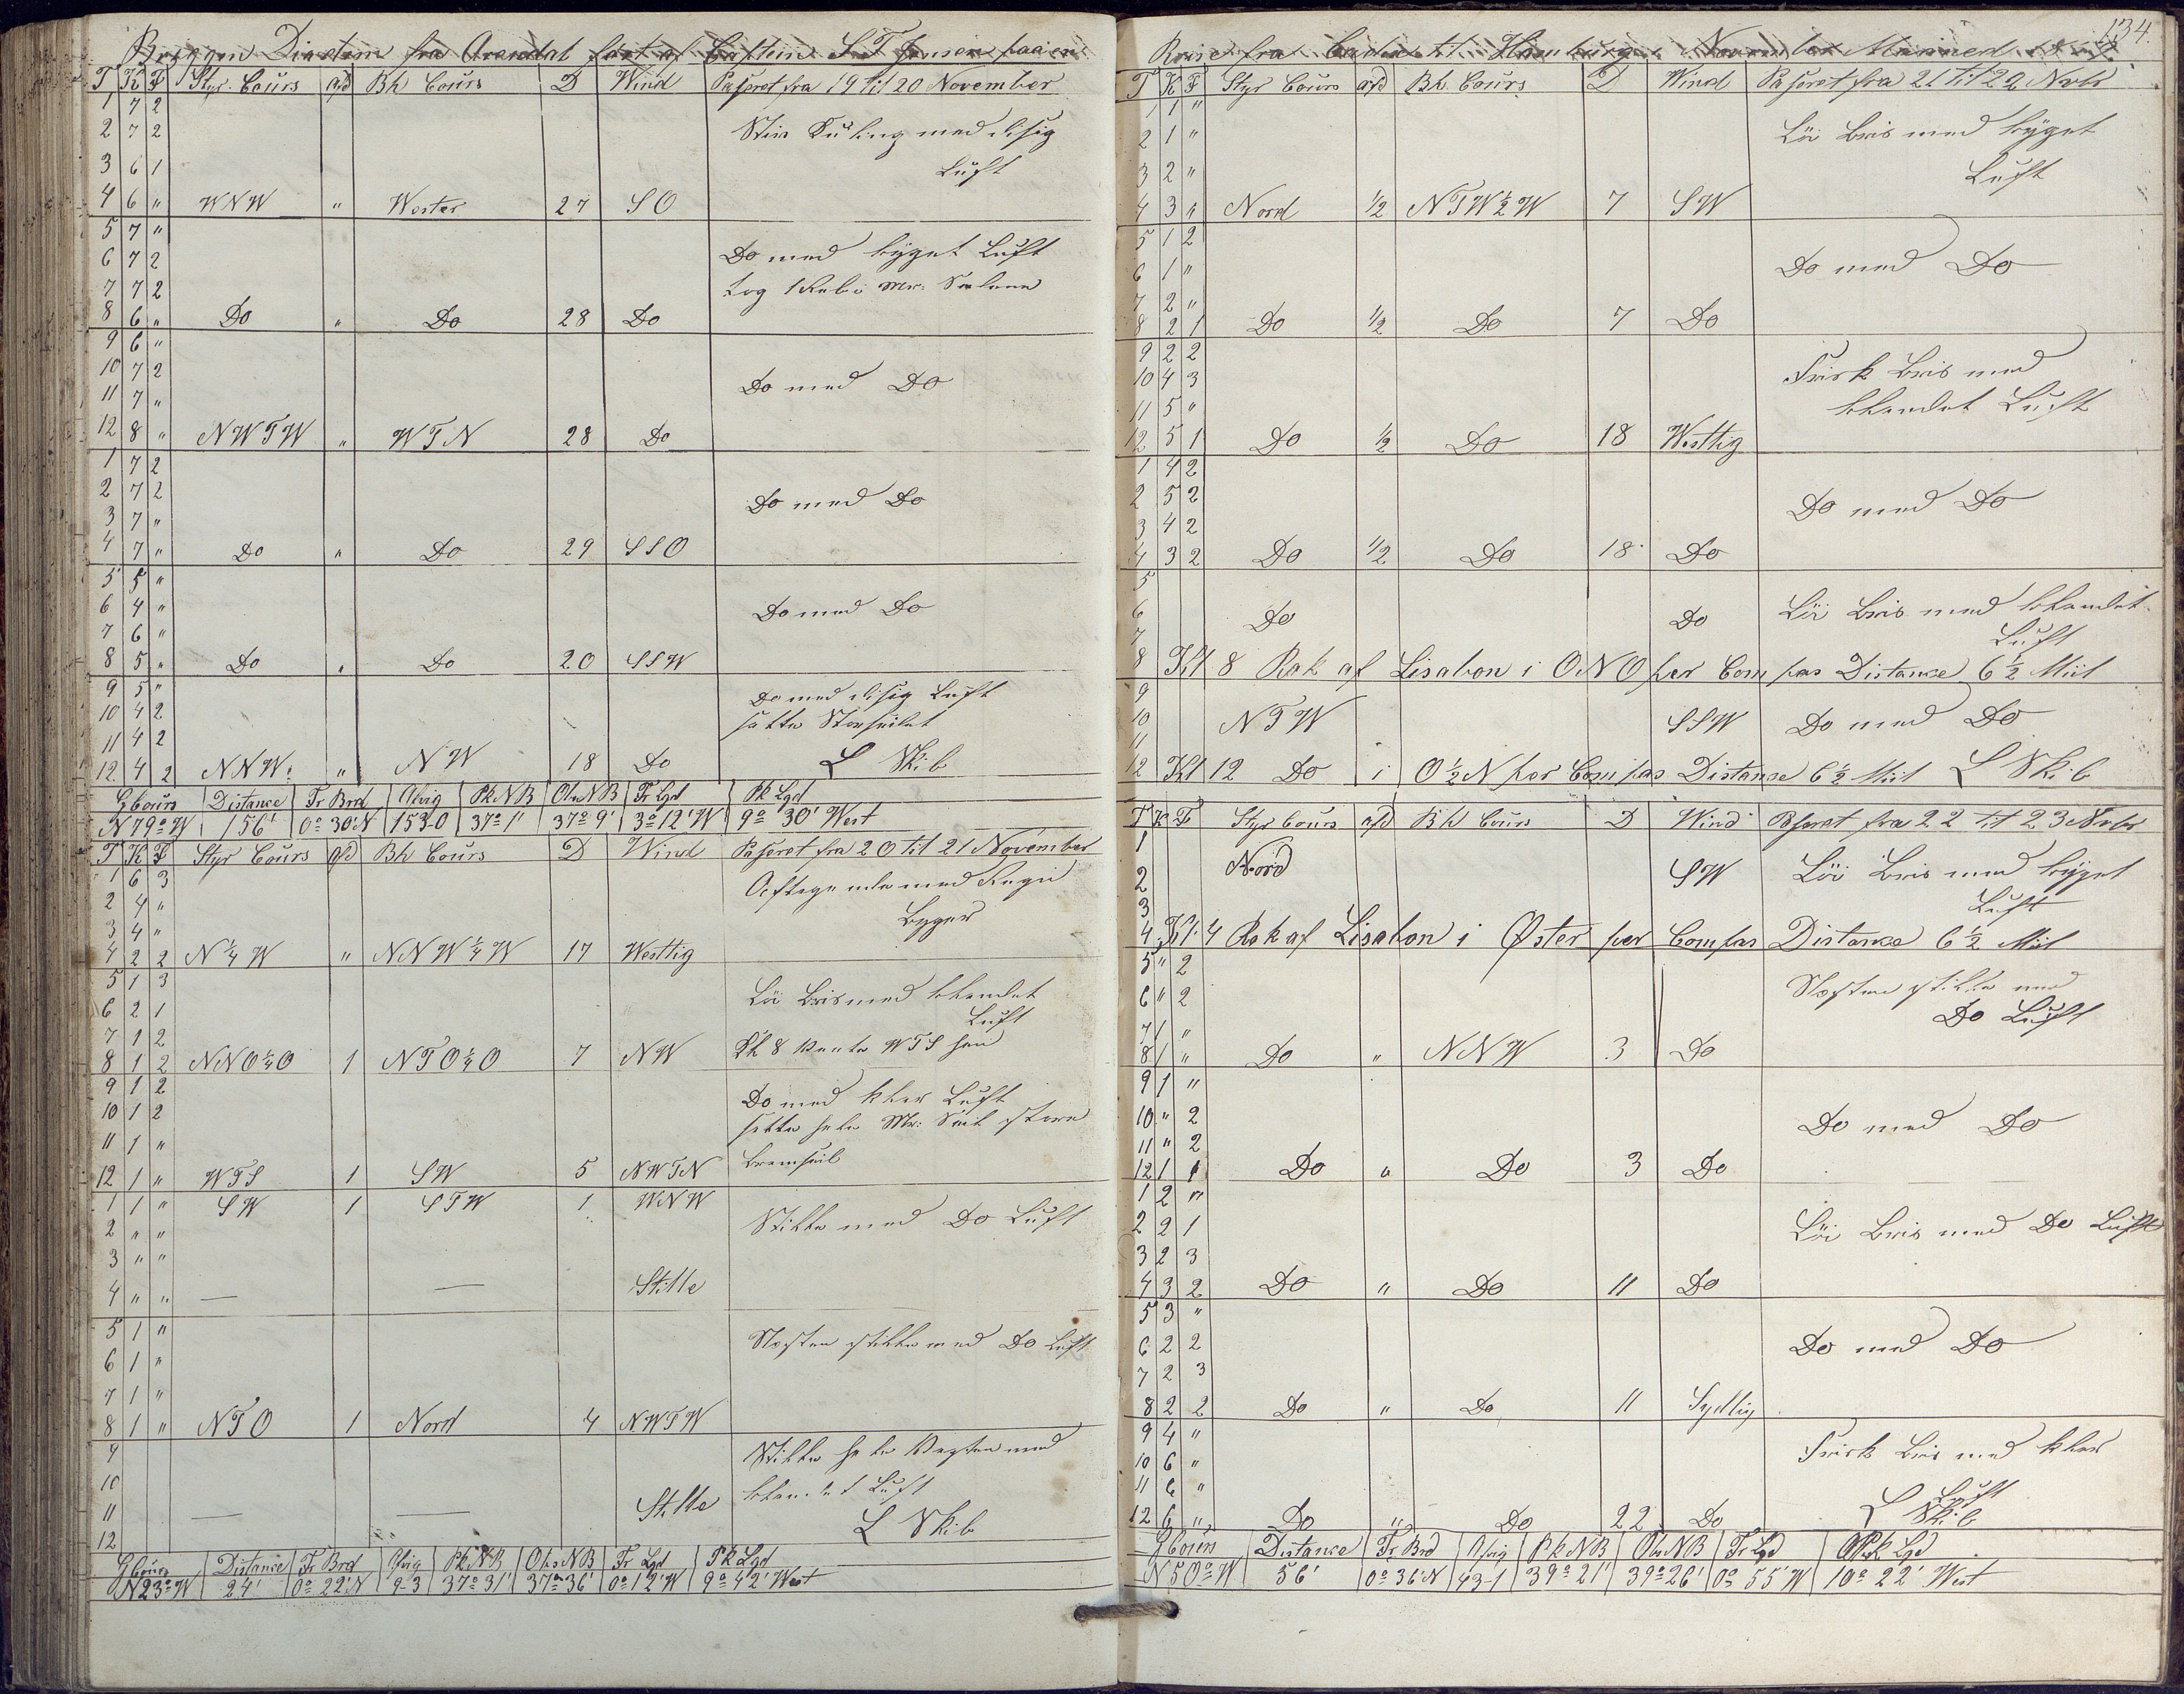 Briggen Diadem fra Arendal ført af Captein S T Jensen paa en
T K F Styr. Cours afd Bh Cours D Wind Paseret fra 19 til 20 November
1 7 2
2 7 2 Stiv Kuling med disig
3 6 1 Luft
4 6 " WNW " Wester 27 SO
5 7 "
6 7 2 Do med byget Luft
7 7 2 tog 1 Reb i Mers Seilene
8 6 " Do " Do 28 Do
9 6 "
10 7 2 Do med Do
11 7 "
12 8 " NWTW " WTN 28 Do
1 7 2
2 7 2 Do med Do
3 7 "
4 7 " Do " Do 29 SSO
5 5 "
6 4 " Do med Do
7 6 "
8 5 " Do " Do 20 SSW
9 5 " Do med disig Luft
10 4 2 satte Storseilet
11 4 2
12 4 2 NNW " NW 18 Do L Skib
G Cours Distance Fr Brd Afvig Pk NB Obs NB Fr Lgd Pk Lgd
N 79° W 156' 0° 30' N 153.0 37° 1' 37° 9' 3° 12' W 9° 30' West
T K F Styr Cours afd Bh Cours D Wind Paseret fra 20 til 21 November
1 6 3 Aftagende med Regn
2 4 " Byger
3 4 "
4 2 2 N 1/4 W " NNW 1/4 W 17 Westlig
5 1 3 Löi Bris med blandet
6 2 1 Luft
7 1 2
8 1 2 NNO 1/4 O 1 NTO 1/4 O 7 NW Kl 8 vente WTS hen
9 1 2 Do med klar Luft
10 1 2 satte hele Mers Seil store
11 1 "
12 1 " WTS 1 SW 5 NWTN Bramseil
1 1 " SW 1 STW 1 WNW Stille med Do Luft
2 " "
3 " "
4 " " — — Stille
5 1 " Næsten stille med Do Luft
6 1 "
7 1 "
8 1 " NTO 1 Nord 4 NWTW
9 Stille hele Vagten med
10 blandet Luft
11 — — Stille
12 L Skib
G Cours Distance Fr Brd Afvig Pk NB Obs NB Fr Lgd Pk Lgd
N 23° W 24' 0° 22' N 9.3 37° 31' 37° 36' 0° 12' W 9° 42' West
134.
Reise fra til Hamburg i November Maaned
T K F Styr Cours afd Bh. Cours D Wind Paseret fra 21 til 22 Nvbr
1 1 "
2 1 " Löi Bris med byget
3 2 " Luft
4 3 " Nord 1/2 NTW 1/2 W 7 SW
5 1 2
6 1 " Do med Do
7 2 "
8 2 1 Do 1/2 Do 7 Do
9 2 2
10 4 3 Frisk Bris med
11 5 " blandet Luft
12 5 1 Do 1/2 Do 18 Westlig
1 4 2
2 5 2 Do med Do
3 4 2
4 3 2 Do 1/2 Do 18 Do
5
6 Do Do Löi Bris med blandet
7 Luft
8 Kl 8 Rak af Lisabon i ONO per Compas Distance 6 1/2 Miil
9
10 NTW SSW Do med Do
11
12 Kl 12 Do i O 1/2 N per Compas Distance 6 1/2 Miil L Skib
T K F Styr Cours afd Bh Cours D Wind Paseret fra 22 til 23 Nvbr
1
2 Nord SW Löi Bris med byget
3 Luft
4 Kl. 4 Rak af Lisabon i Øster per Compas Distance 6 1/2 Miil
5 " 2
6 " 2 Næsten stille med
7 1 " Do Luft
8 1 " Do " NNW 3 Do
9 1 "
10 " 2 Do med Do
11 " 2
12 1 1 Do " Do 3 Do
1 2 "
2 2 1 Löi Bris med Do Luft
3 2 3
4 3 2 Do " Do 11 Do
5 3 "
6 2 2 Do med Do
7 2 3
8 2 2 Do " Do 11 Sydlig
9 4 "
10 6 " Frisk Bris med klar
11 6 " Luft
12 6 " Do " Do 22 Do L Skib
G Cours Distance Fr Brd Afvig Pk NB Obs NB Fr Lgd Pk Lgd
N 50° W 56' 0° 36' N 43.1 39° 21' 39° 26' 0° 55' W 10° 22' West